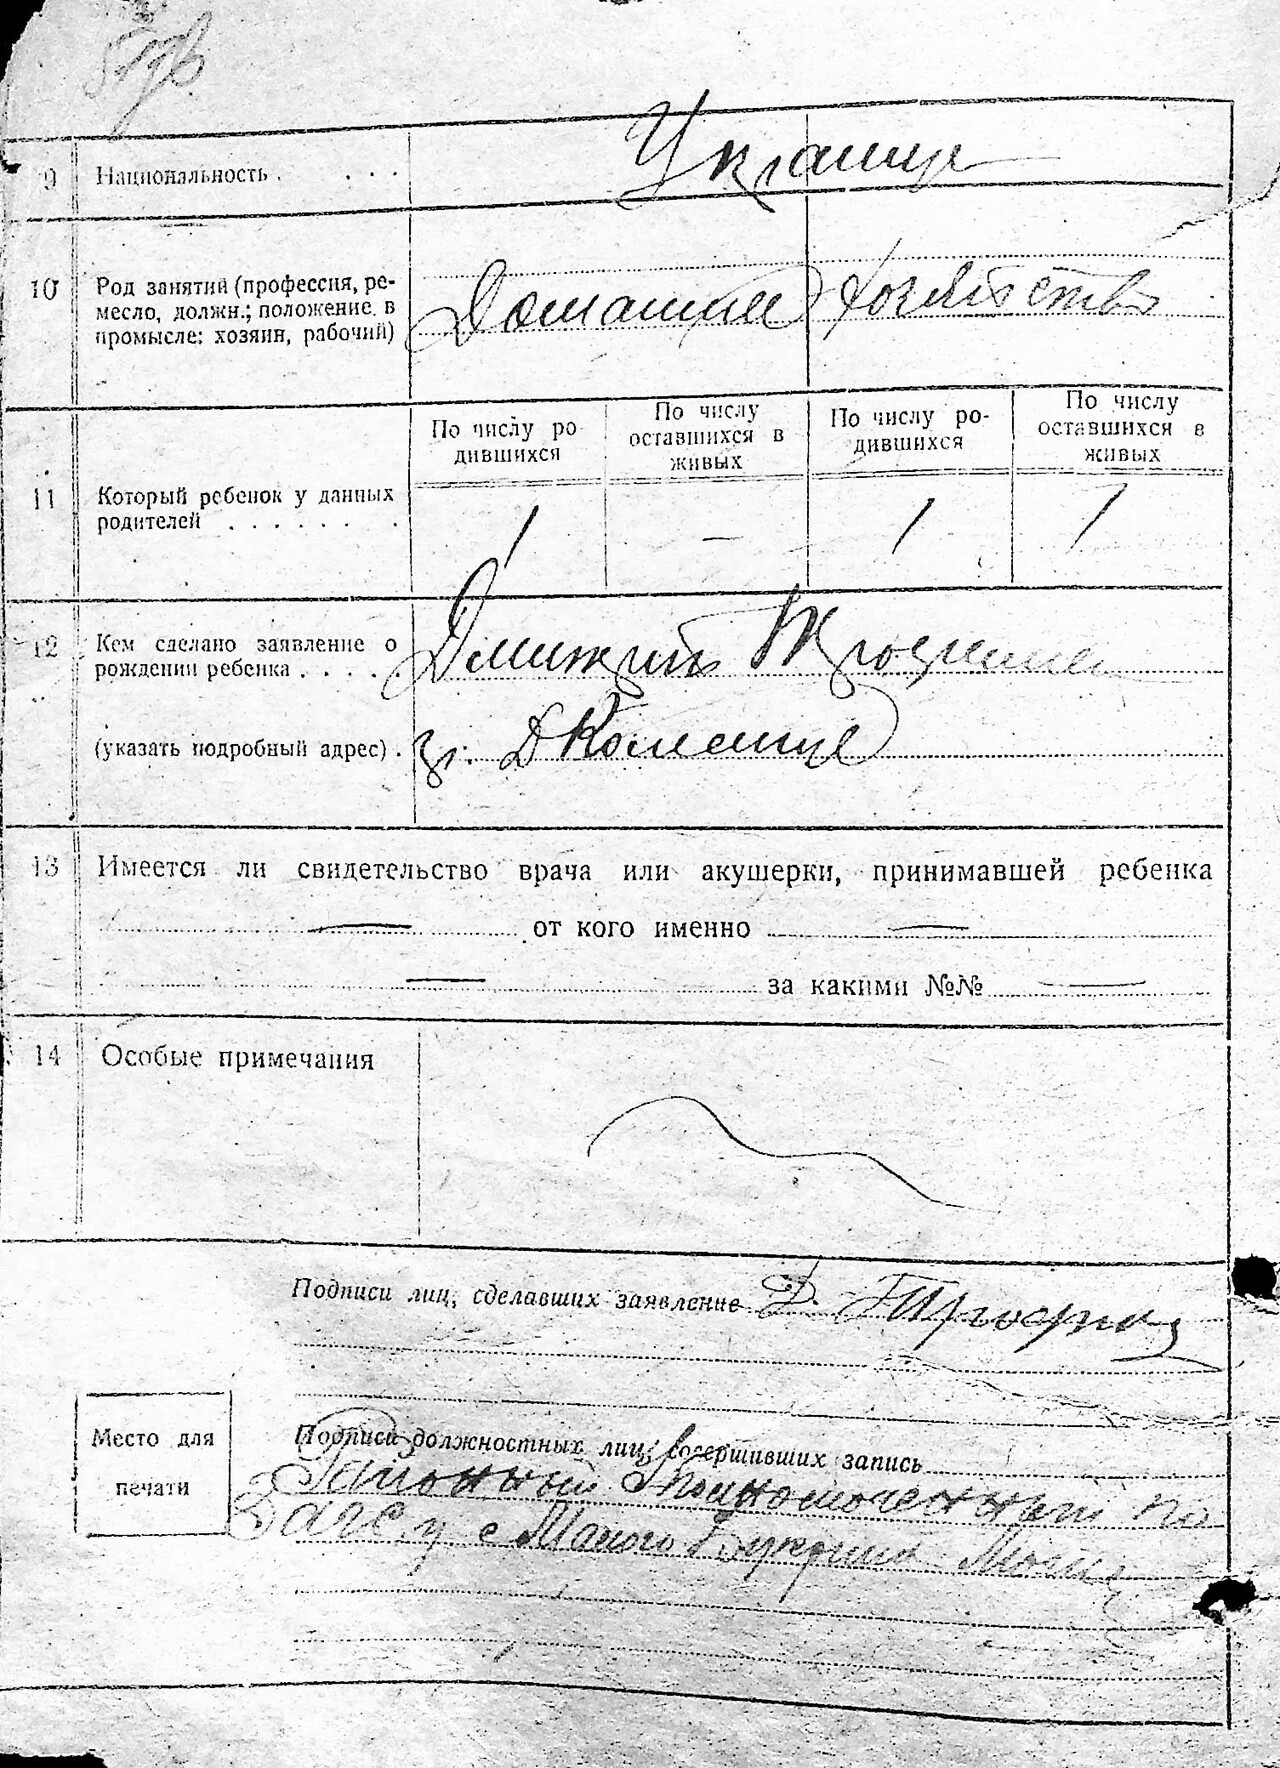 9 Национальность . . . .
Украинцы
10 Род занятий (профессия, ре-
месло, должн.; положение в
промысле: хозяин, рабочий)
Домашнее хозяйство
11 Который ребенок у данных
родителей . . . . . . .
По числу ро
дившихся
По числу
оставшихся в
живых
По числу ро-
дившихся
По числу
оставшихся в
живых
1 — 1 1
12 Кем сделано заявление о
рождении ребенка . . . . .
Дмитрий
(указать подробный адрес) .
13 Имеется ли свидетельство врача или акушерки, принимавшей ребенка
— от кого именно —
— за какими №№ —
14 Особые примечания
Подписи лиц, сделавших заявление Д.
Место для
печати
Подписи должностных лиц, совершивших запись
Районный по
Загсу с Малого Букрина